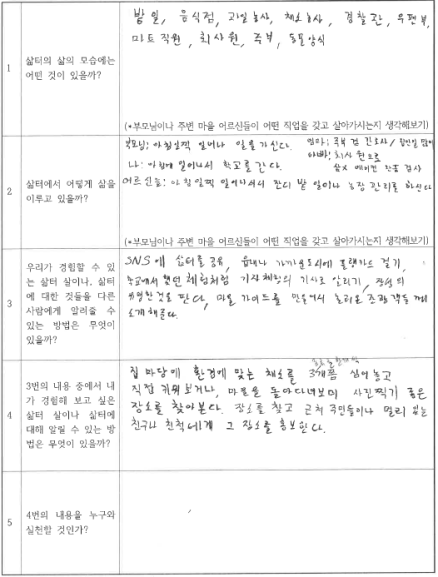 1
삶터의 삶의 모습에는
어떤 것이 있을까?
밭일, 음식점, 과일농사, 채소농사, 경찰관, 우편부,
마트 직원, 회사원, 주부,
(*부모님이나 주변 마을 어르신들이 어떤 직업을 갖고 살아가시는지 생각해보기)
2
삶터에서 어떻게 삶을
이루고 있을까?
부모님: 아침일찍 일어나 일을 가신다.
엄마: 주부 겸 간호사/
아빠: 회사원으로
나: 아침에 일어나서 학교를 간다.
어르신들: 아침일찍 일어나셔서 잔디 밭 일이나 농장 관리를 하신다
(*부모님이나 주변 마을 어르신들이 어떤 직업을 갖고 살아가시는지 생각해보기)
3
우리가 경험할 수 있
는 삶터 살이나, 삶터
에 대한 것들을 다른
사람에게 알리줄 수
있는 방법은 무엇이
있을까?
SNS에 삶터를 공유, 읍내나 가까운 도시에 플랭카드 걸기,
학교에서 했던 체험처럼 기자체험의 기사로 알리기, 장성의
유명한 것을 판다, 마을 가이드를 만들어서 놀러온 관광객들께
소개해준다.
4
3번의 내용 중에서 내
가 경험해 보고 싶은
삶터 살이나 삶터에
대해 알릴 수 있는 방
법은 무엇이 있을까?
집 마당에 환경에 맞는 채소를 3개쯤 심어놓고
직접 키워보거나, 마을을 돌아다녀보며 사진찍기 좋은
장소를 찾아본다. 장소를 찾고 근처 주민들이나 멀리 있는
친구나 친척에게 그 장소를 홍보한다.
5
4번의 내용을 누구와
실천할 것인가?